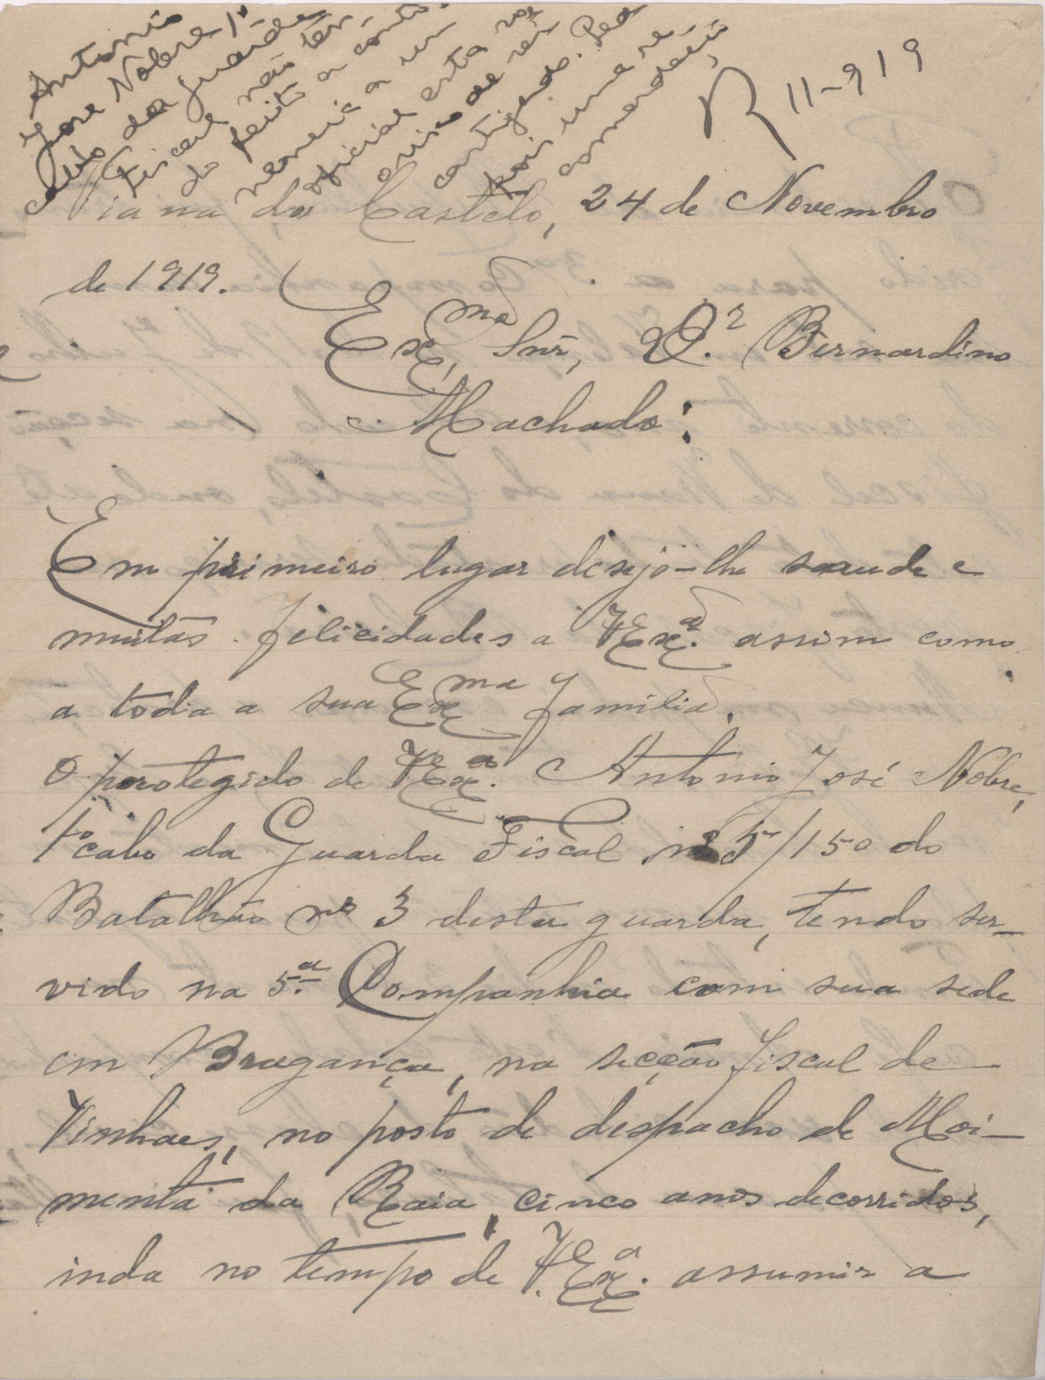 Antonio
José Nobre 1º
cabo da guarda
fiscal não ten
do feito a conti-
nencia a um
oficial esta no
aviso de ser
castigado. Pede
por uma re
comendação
R 11-919
Viana do Castelo, 24 de Novembro
de 1919.
Exᵐᵒ, Snr, D.ʳ Bernardino
Machado:
Em primeiro lugar desejo-lhe saude e
muitas felicidades a VExª. assim como
a toda a sua Exᵐᵃ familia.
O protegido de VExª. Antonio José Nobre,
1º cabo da Guarda Fiscal nº 5/150 do
Batalhão nº 3 desta guarda, tendo ser-
vido na 5.ª Companhia com sua sede
em Bragança, na secção fiscal de
Vinhaes, no posto de despacho de Moi-
menta da Raia, cinco anos decorridos,
inda no tempo de V.Exª. assumir a